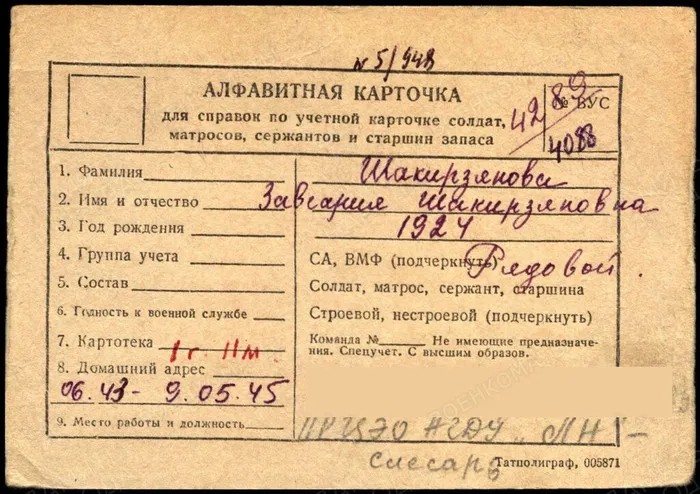 № 5/948
АЛФАВИТНАЯ КАРТОЧКА
для справок по учетной карточке солдат,
матросов, сержантов и старшин запаса
4283
№ ВУС
4088
1. Фамилия Шакирзянова
2. Имя и отчество Завгария Шакирзяновна
3. Год рождения 1924
4. Группа учета
5. Состав
6. Годность к военной службе
7. Картотека 1г. 11м.
8. Домашний адрес
06.43 - 9.05.45
9. Место работы и должность
СА, ВМФ (подчеркнуть) Рядовой.
Солдат, матрос, сержант, старшина
Строевой, нестроевой (подчеркнуть)
Команда № Не имеющие предназначе-
ния. Спецучет. С высшим образов.
НГДУ „ЛН"-
слесарь
Татполиграф, 005871